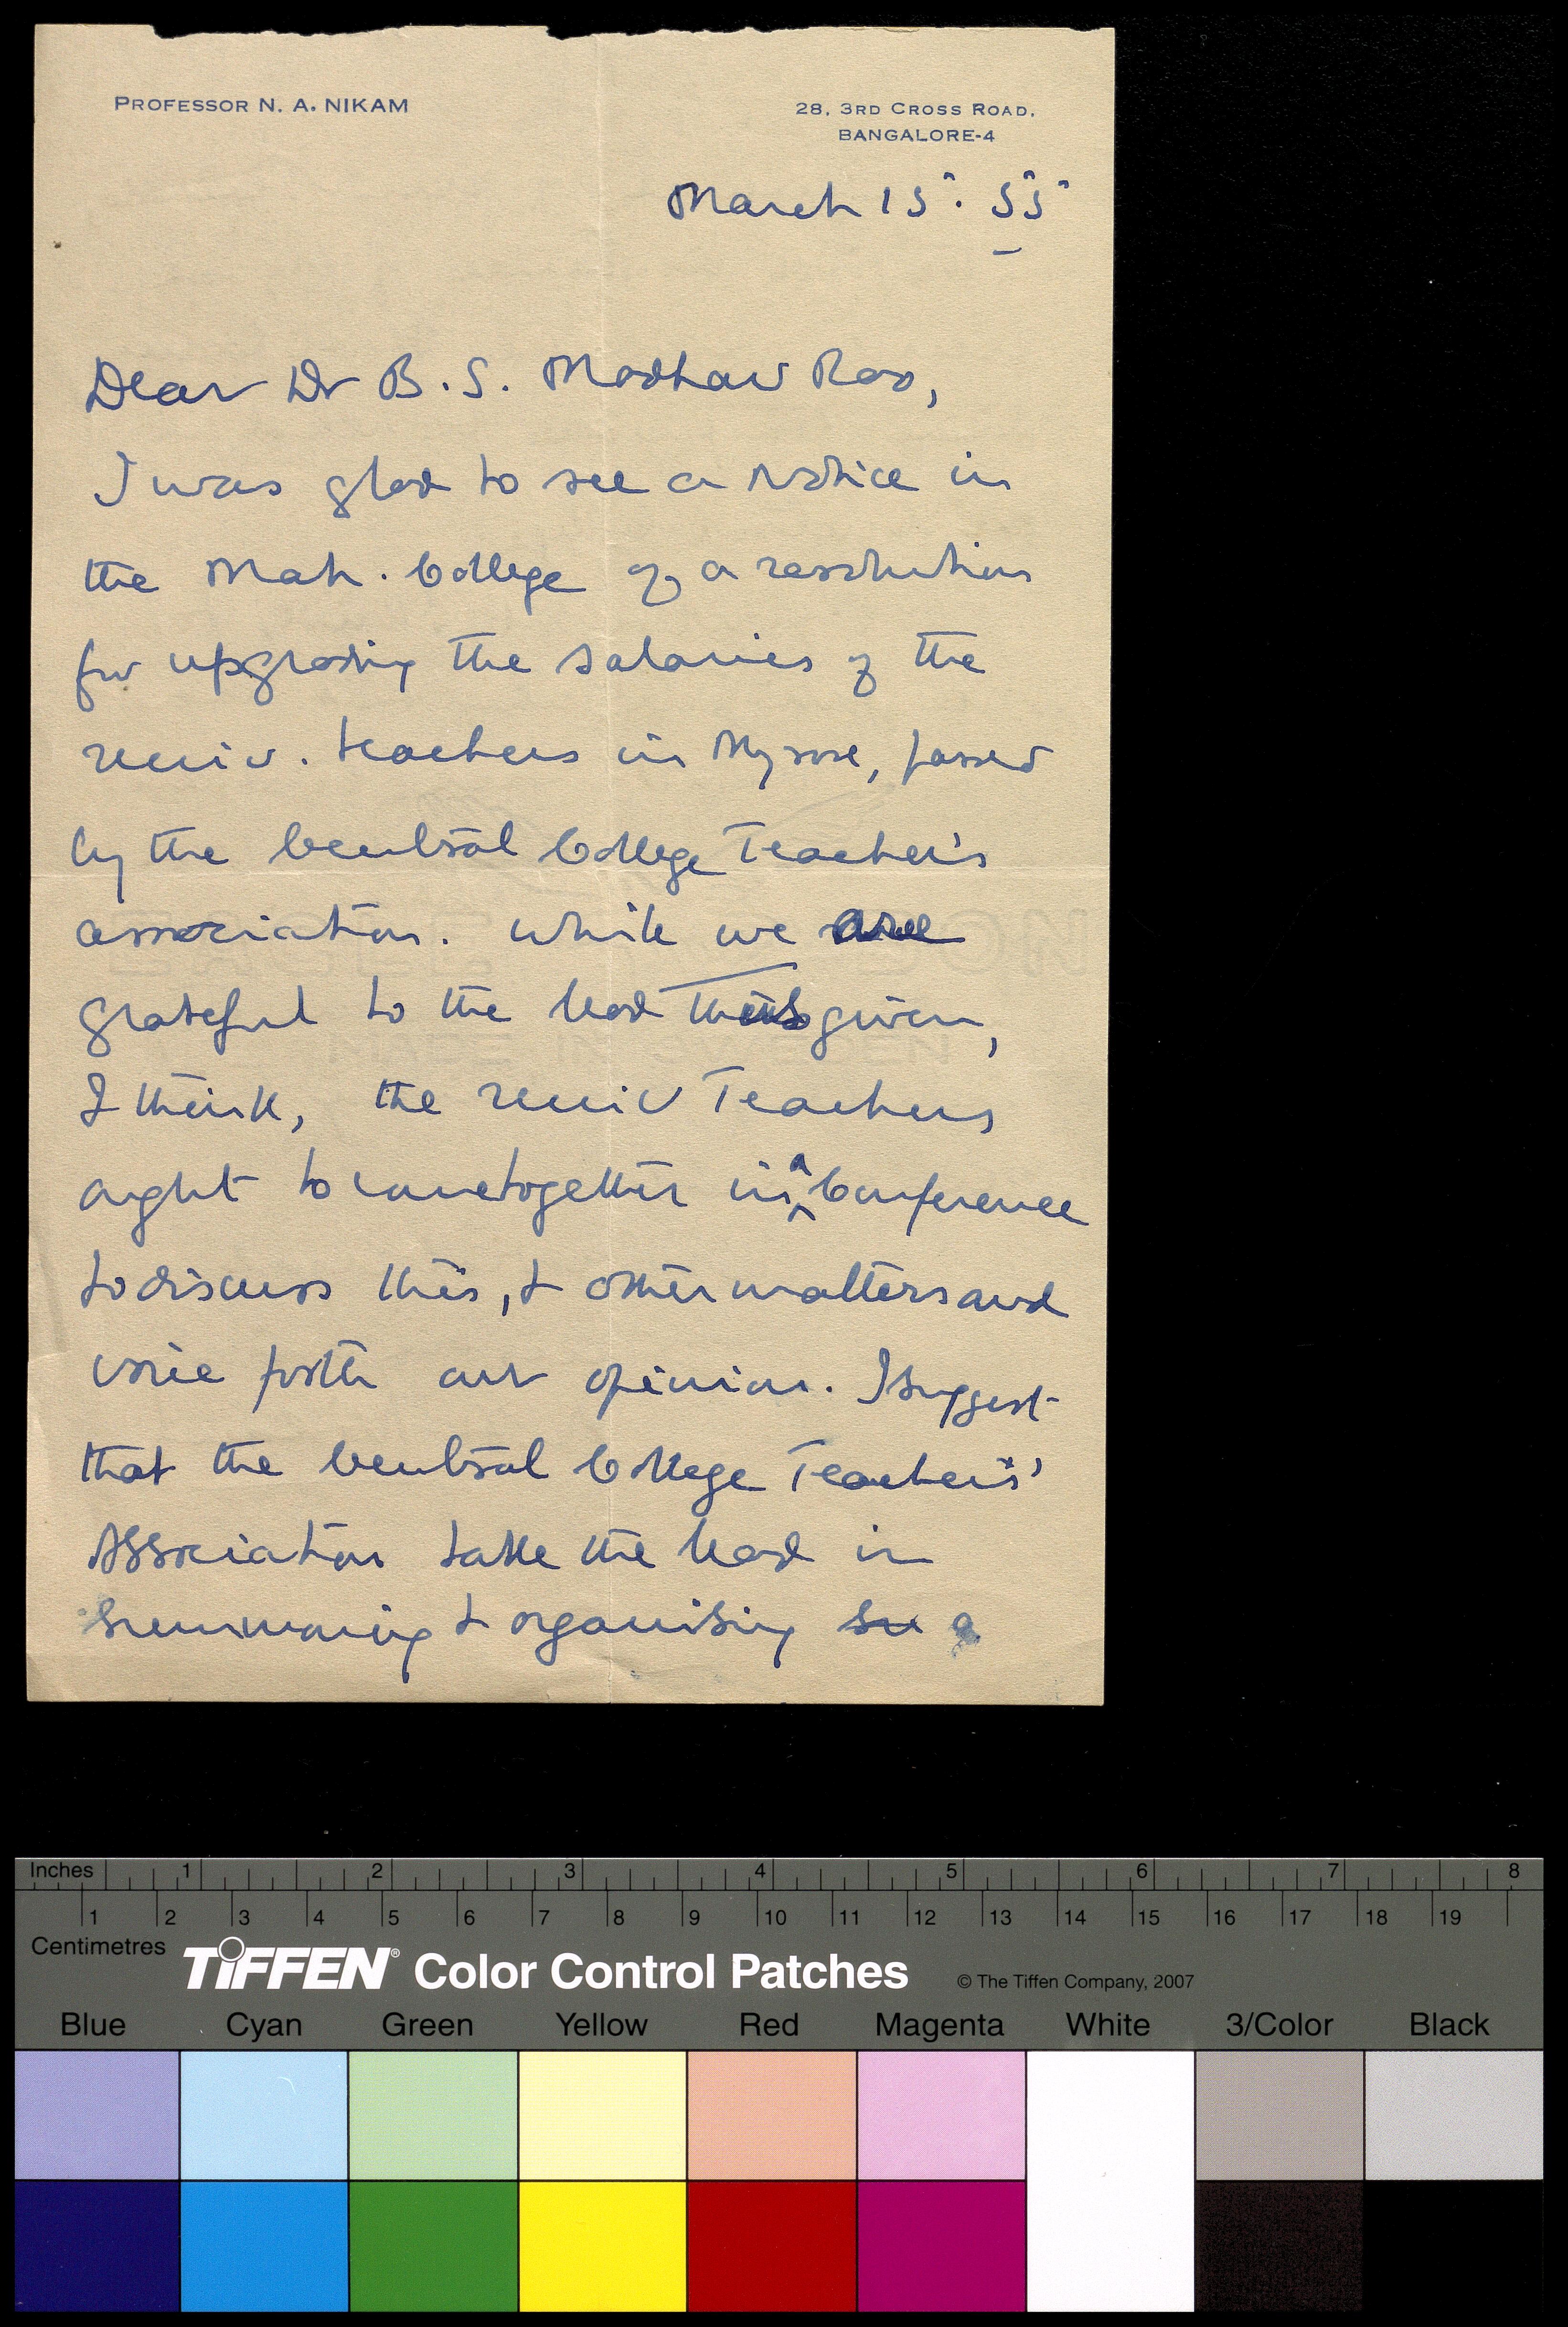 PROFESSOR N. A. NIKAM
28, 3RD CROSS ROAD,
BANGALORE-4
March 15. 55
Dear Dr B. S. Madhav Rao,
I was glad to see a notice in
the Mah. College of a resolution
for upgrading the salaries of the
univ. teachers in Mysore, passed
by the Central College Teacher's
association. While we are
grateful to the lead thus given,
I think, the univ Teachers
ought to come together in a Conference
to discuss this, & other matters and
voice forth our opinion. I suggest
that the Central College Teachers'
Association take the lead in
summoning & organising su a
Inches 1 2 3 4 5 6 7 8
1 2 3 4 5 6 7 8 9 10 11 12 13 14 15 16 17 18 19
Centimetres
TIFFEN® Color Control Patches © The Tiffen Company, 2007
Blue Cyan Green Yellow Red Magenta White 3/Color Black